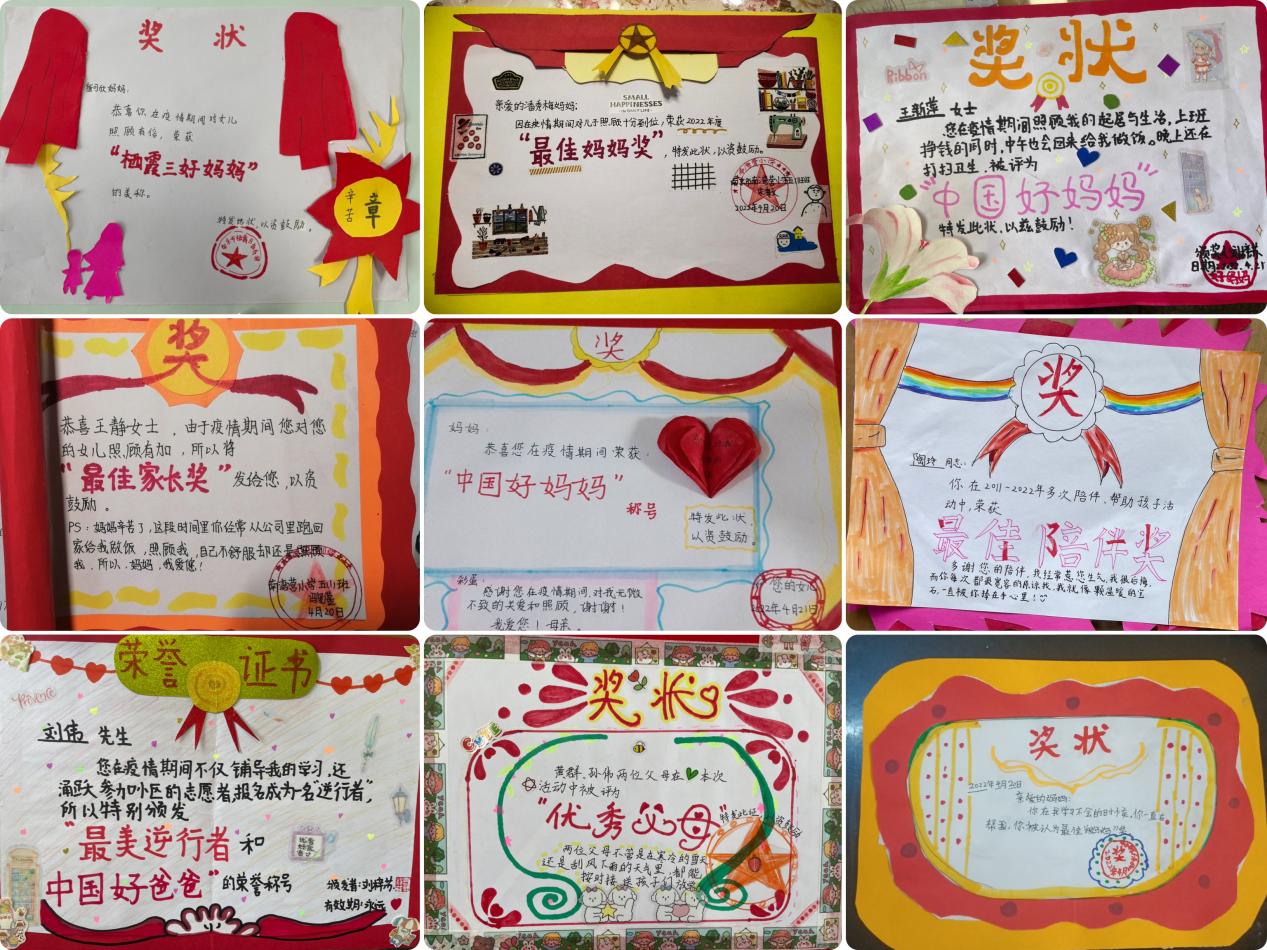 奖 状
恭喜您在疫情期间对女儿
照顾有佳，荣获
“栖霞三好妈妈”
的美称。
特发此状，以资鼓励。
辛苦
章
SMALL
HAPPINESSES
亲爱的潘秀梅妈妈：
因在疫情期间对儿子照顾十分到位，荣获2022年度
“最佳妈妈奖”，特发此状，以资鼓励。
2022年4月20日
奖状
Ribbon
王新莲 女士
您在疫情期间照顾我的起居与生活，上班
挣钱的同时，中午也会回来给我做饭。晚上还在
打扫卫生，被评为
“中国好妈妈”
特发此状，以兹鼓励！
奖
恭喜王静女士，由于疫情期间您对您
的女儿照顾有加，所以将
“最佳家长奖”发给您，以资
鼓励。
PS：妈妈辛苦了，这段时间里你经常从公司里跑回
家给我做饭，照顾我，自己不舒服却还是照顾
我，所以，妈妈，我爱您！
4月20日
奖
妈妈：
恭喜您在疫情期间荣获：
“中国好妈妈”
称号
特发此状，
以资鼓励。
彩蛋：
感谢您在疫情期间，对我无微
不致的关爱和照顾，谢谢！
我爱您！母亲。
您的女儿
2022年4月21日
奖
陶玲 同志：
你在2011-2022年多次陪伴、帮助孩子活
动中，荣获
最佳陪伴奖
多谢您的陪伴，我经常惹您生气，我很后悔，
而你每次都最宽容的原谅我，我就像颗温暖的宝
石，一直被你捧在手心里！
荣誉 证书
刘伟 先生
您在疫情期间不仅辅导我的学习，还
涌跃参加小区的志愿者，报名成为一名逆行者，
所以特别颁发
“最美逆行者 和
中国好爸爸”的荣誉称号
颁发者：刘梓芬
有效期：永远
奖状
CUTE
黄群、孙伟两位父母在本次
活动中被评为
“优秀父母”
特发此证，以资鼓励
两位父母不管是在寒冷的雪天，
还是刮风下雨的天气里，都能
按时接送孩子们放学
奖状
亲爱的妈妈：
你在我学习不会的时候，你一直在
帮我，你被认为最佳“妈妈”奖
奖